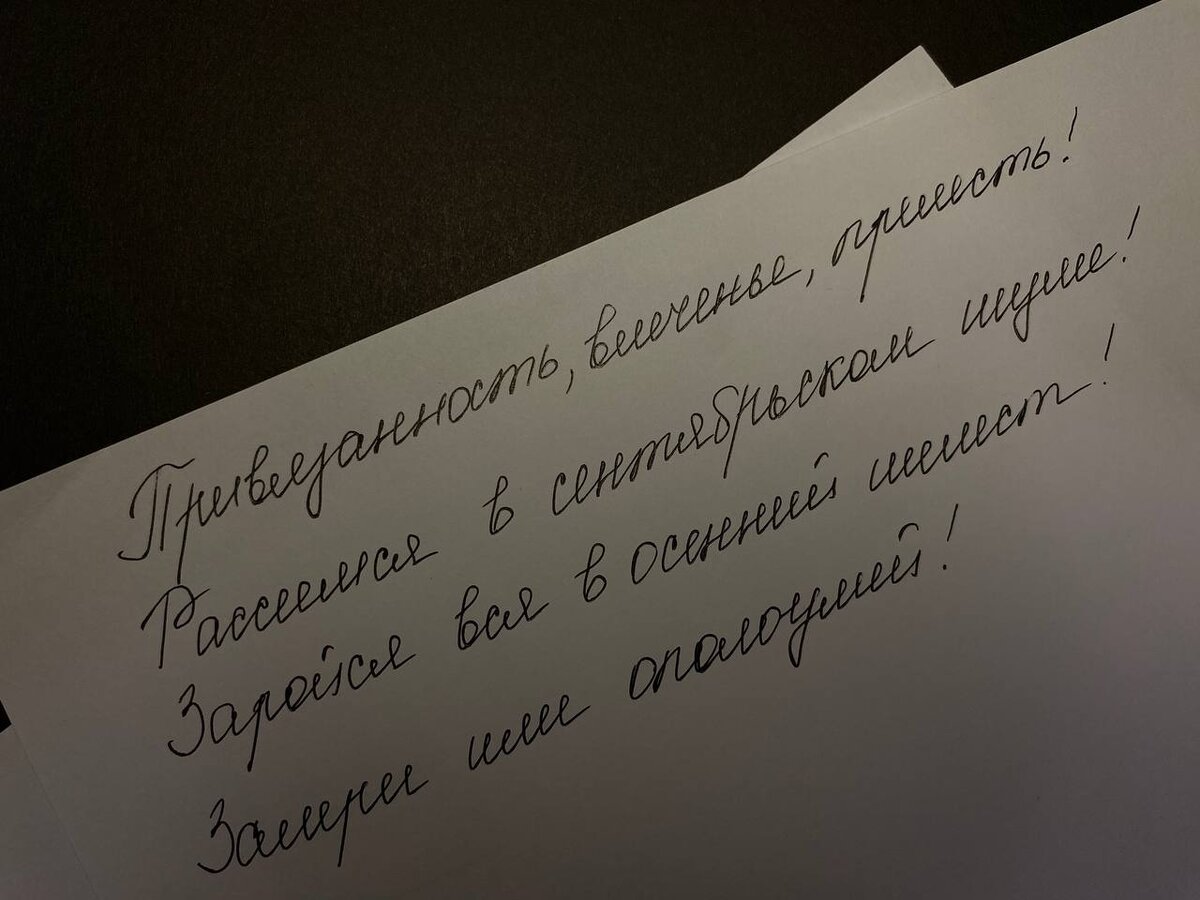 Привязанность, влеченье, прелесть!
Рассеемся в сентябрьском шуме!
Заройся вся в осенний шелест!
Замри или ополоумей!